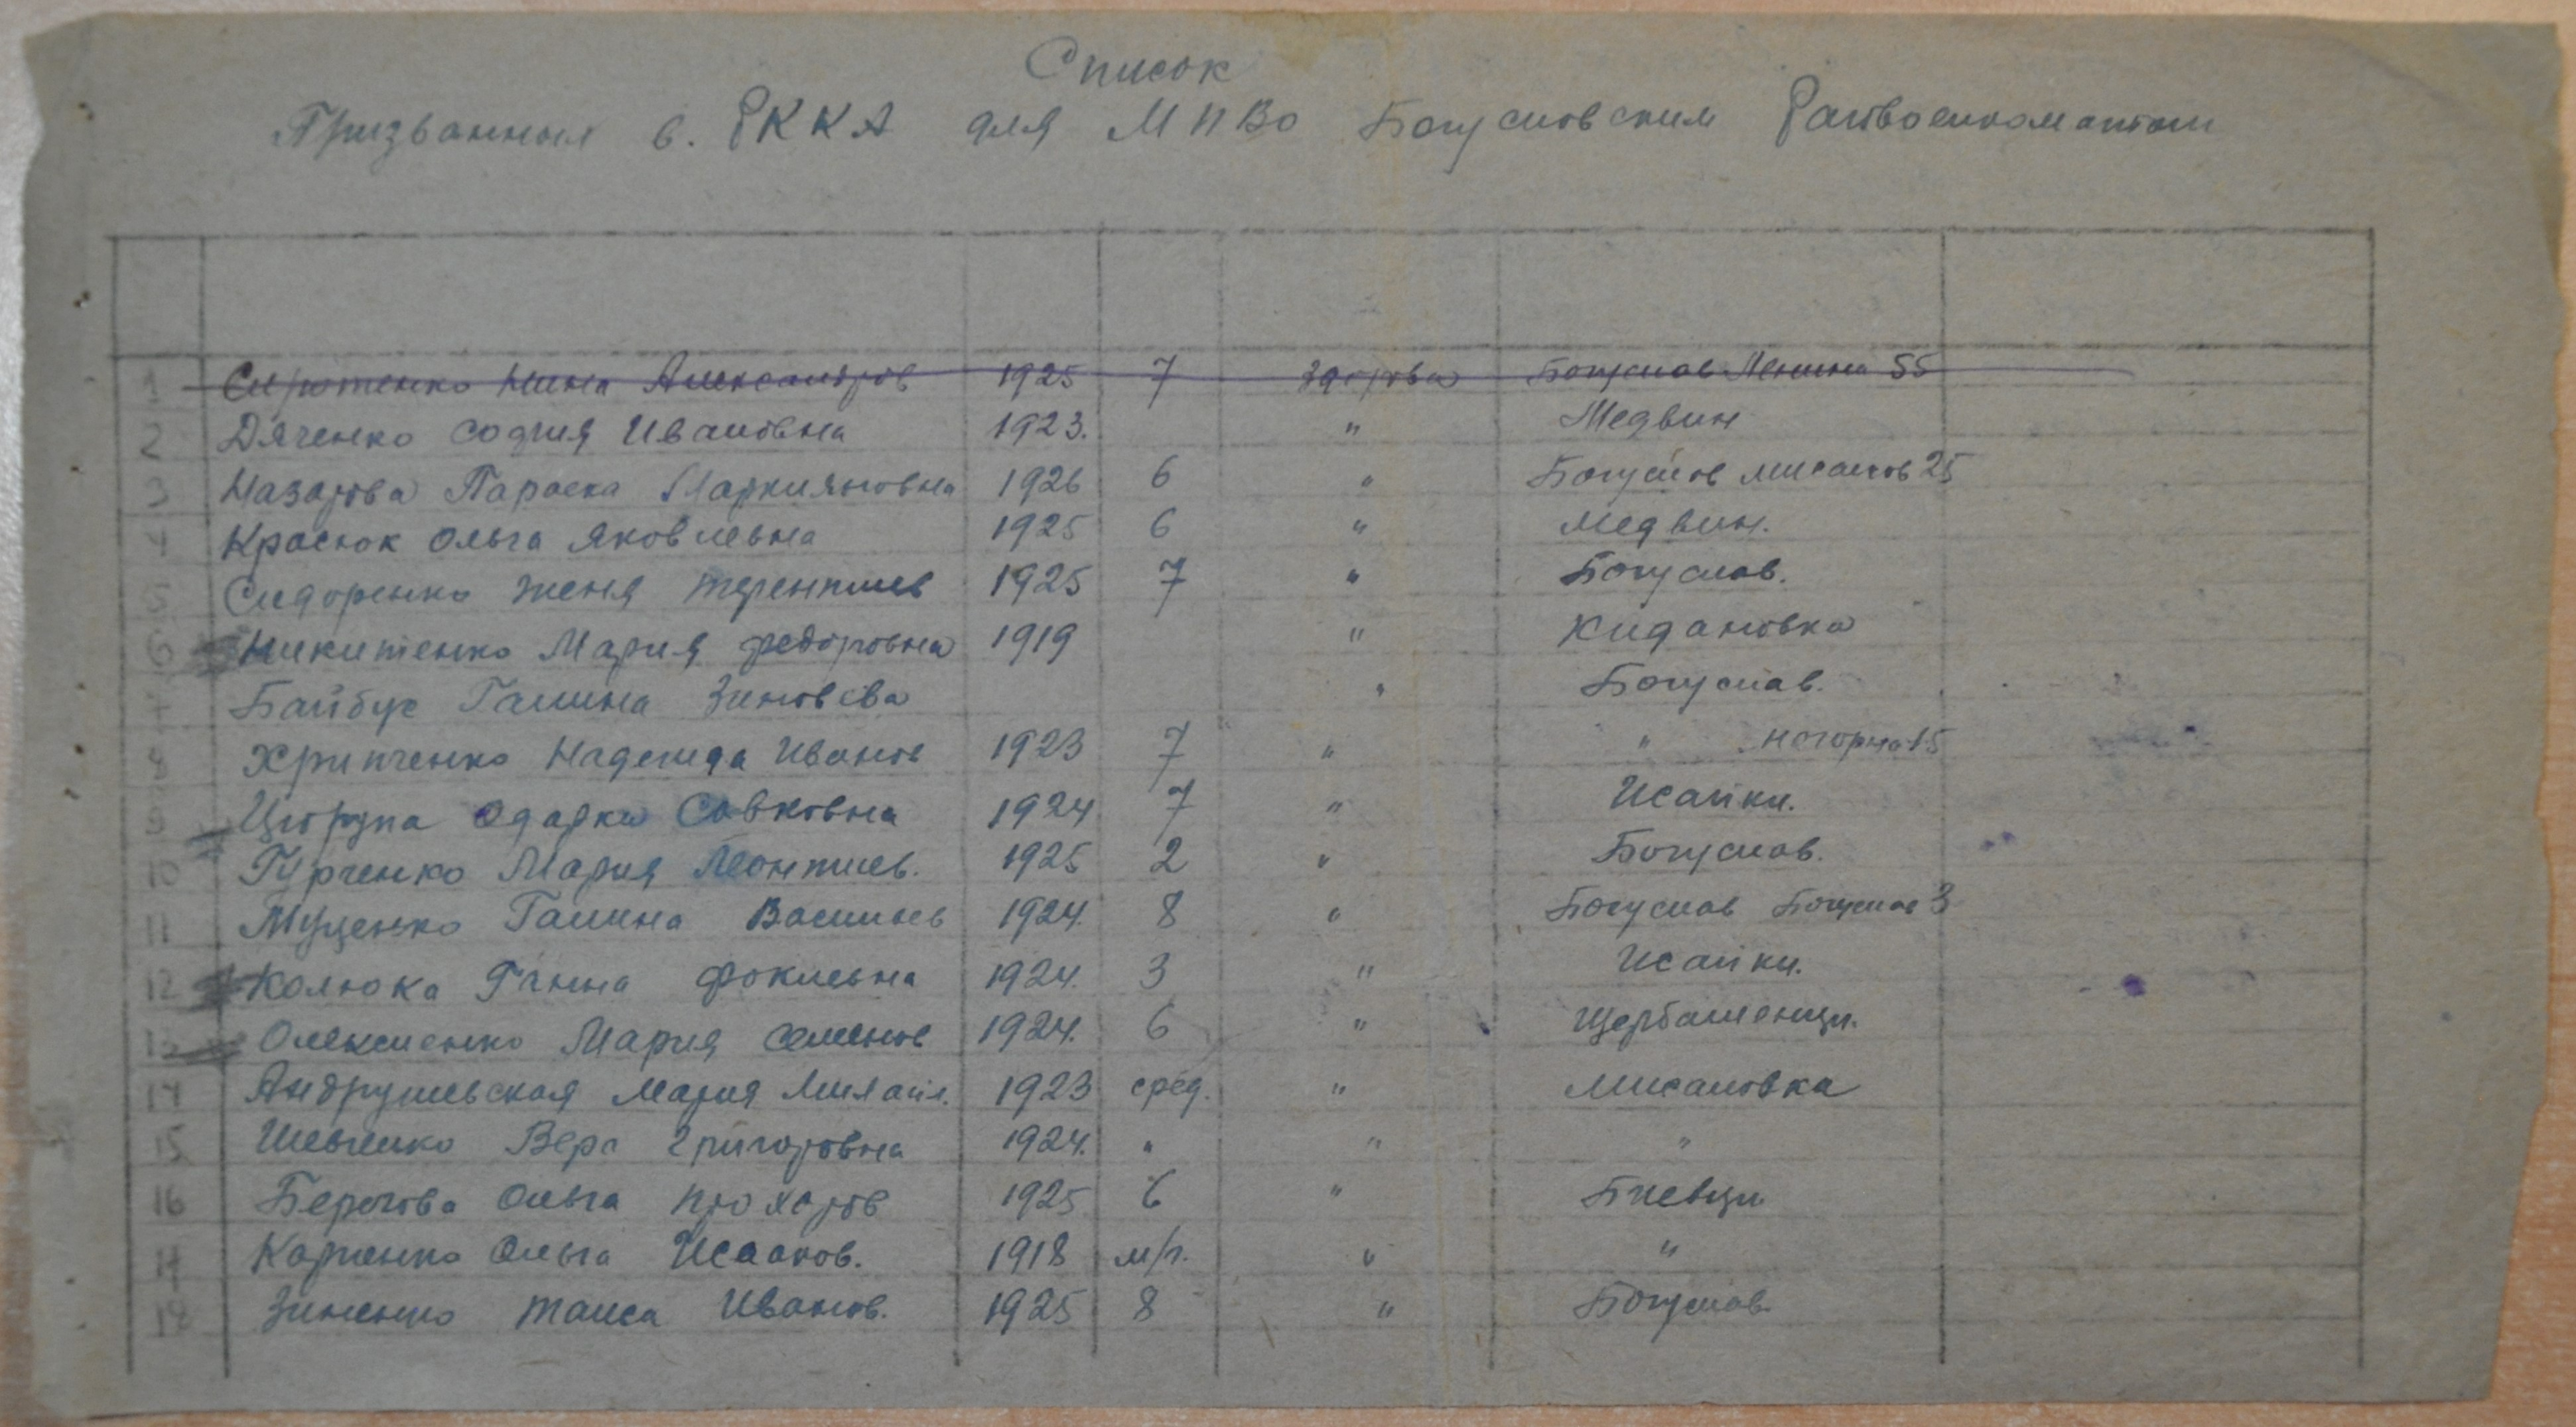 Список
Призванных в. РККА для МПВО Богуславским Райвоенкоматом
1 Сиротенко Нина Александров 1925 7 Здорова Богуслав Ленина 55
2 Дяченко София Ивановна 1923. " Медвин
3 Назарова Параска Маркияновна 1926 6 " Богуслав Мисайлов 25
4 Красюк Ольга Яковлевна 1925 6 " Медвин.
5 Сидоренко Женя Терентиев 1925 7 " Богуслав.
6 Никитенко Мария Федоровна 1919 " Кидановка
7 Байбуз Галина Зиновева " Богуслав.
8 Хрипченко Надежда Иванов 1923 7 " " Нагорна 15
9 Цюрупа Одарка Савковна 1924 7 " Исайки.
10 Гурченко Мария Леонтиев. 1925 2 " Богуслав.
11 Муценко Галина Васильев 1924. 8 " Богуслав Богуслав 3
12 Колюка Ганна Фокиевна 1924. 3 " Исайки.
13 Олексиенко Мария Семенов 1924. 6 " Щербашенци.
14 Андрушевская Мария Михайл. 1923 сред. " Мисайловка
15 Шевченко Вера Григоровна 1924. " " "
16 Берегова Ольга Прохоров 1925 6 " Биевци
17 Карпенко Ольга Исааков. 1918 м/г. " "
18 Зиненко Таиса Иванов. 1925 8 " Богуслав.